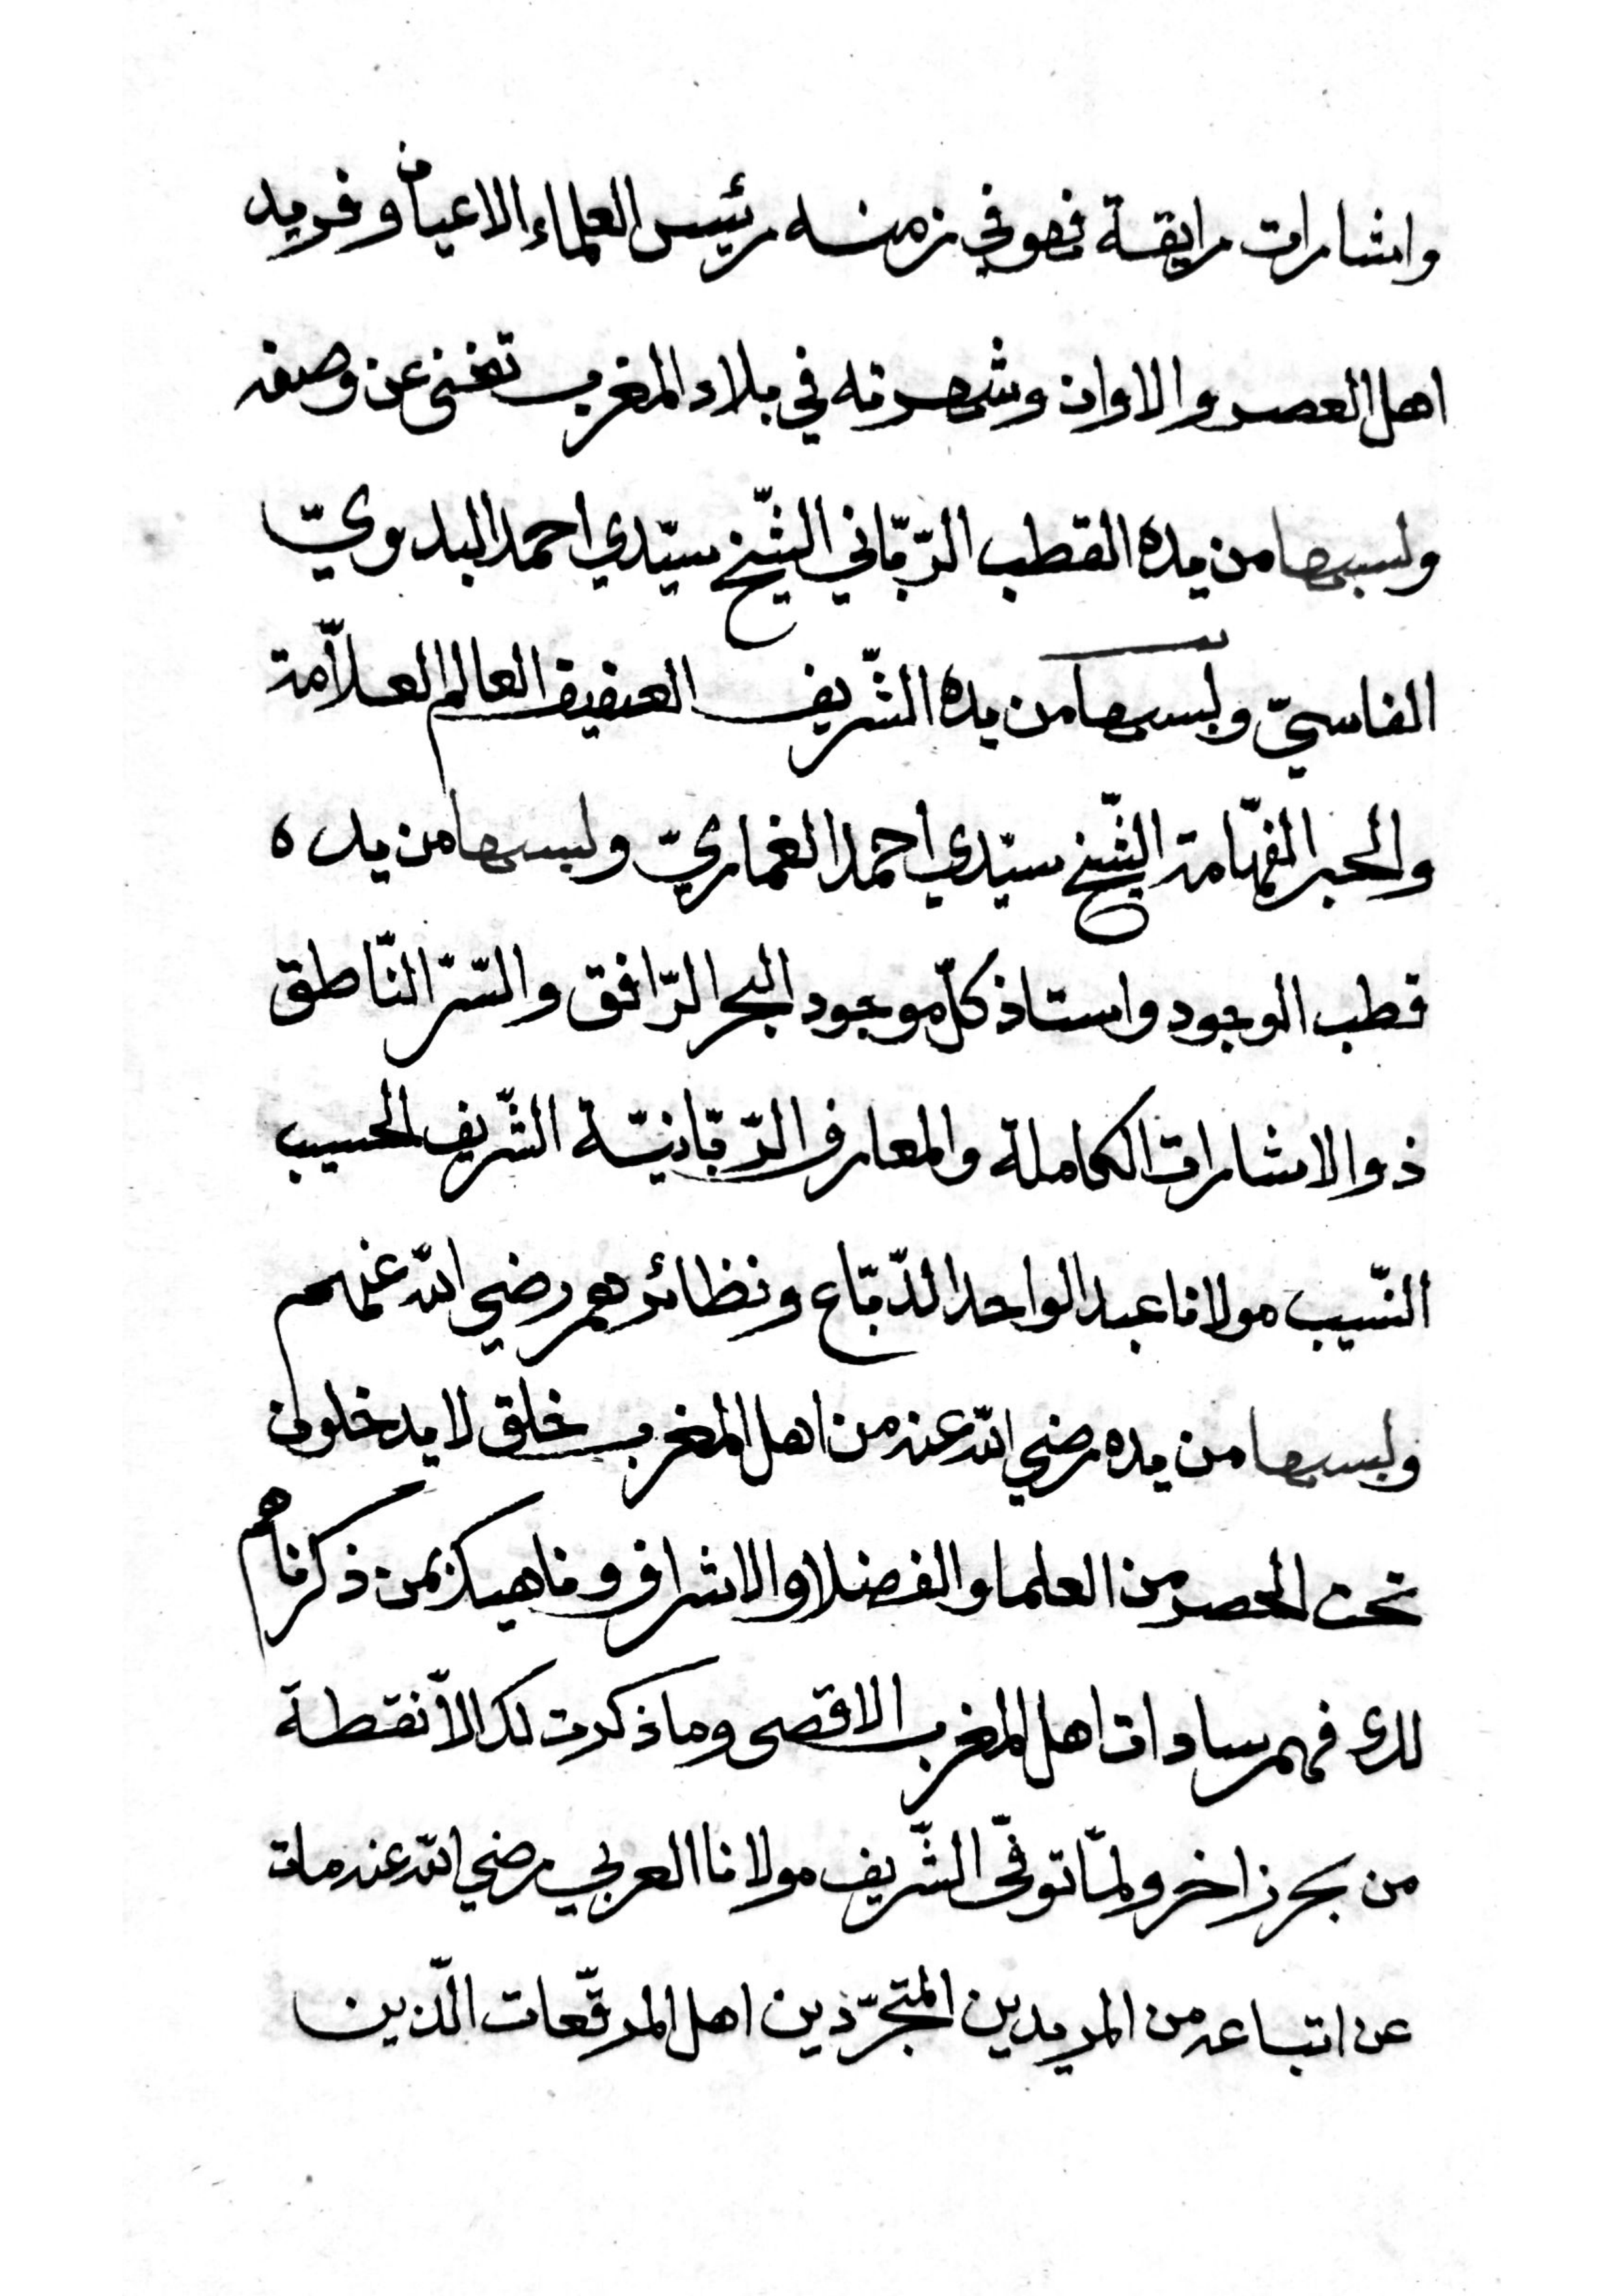 واشارات رايقة فهو في زمنه رئيس العلماء الاعيان وفريد
اهل العصر والاوان وشهرته في بلاد المغرب تغني عن وصفه
ولبسها من يده القطب الربّاني الشّيخ سيّدي احمد البدويّ
الفاسيّ ولبسها من يده الشّريف العفيف العالم العلاّمة
والحبر الفهّامة الشّيخ سيّدي احمد الغماريّ ولبسها من يده
قطب الوجود واستاذ كلّ موجود البحر الرّافق والسّرّ النّاطق
ذو الاشارات الكاملة والمعارف الرّبّانيّة الشّريف الحسيب
النّسيب مولانا عبد الواحد الدّبّاع ونظائرهم رضي الله عنهم
ولبسها من يده رضي الله عنه من اهل المغرب خلق لا يدخلون
تحت الحصر من العلما والفضلا والاشراف وناهيك بمن ذكرناهم
لك فهم سادات اهل المغرب الاقصى وما ذكرت لك الاّ نقطة
من بحر زاخر ولمّا توفّى الشّريف مولانا العربي رضي الله عنه مات
عن اتباعه من المريدين المتجرّذين اهل المرقّعات الّذين